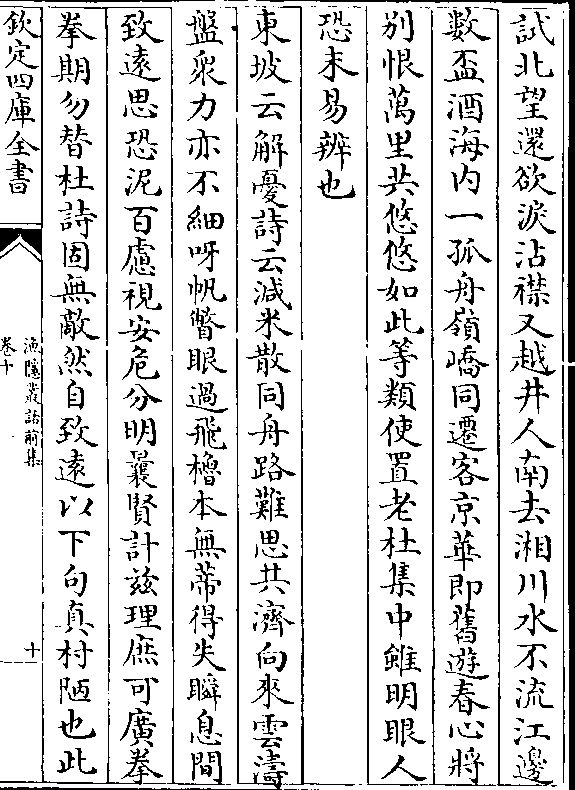 試北望還欲淚沾襟又越井人南去湘川水不流江邊
數盃酒海内一孤舟嶺嶠同遷客京華即舊遊春心將
别恨萬里共悠悠如此等類使置老杜集中雖明眼人
恐未易辨也
東坡云解憂詩云減米散同舟路難思共濟向來雲濤
盤衆力亦不細呀帆瞥眼過飛櫓本無蔕得失瞬息間
致遠思恐泥百慮視安危分明曩賢計兹理庶可廣拳
拳期勿替杜詩固無敵然自致遠以下句真村陋也此
欽定四庫全書
漁隱叢話前集
卷十
十